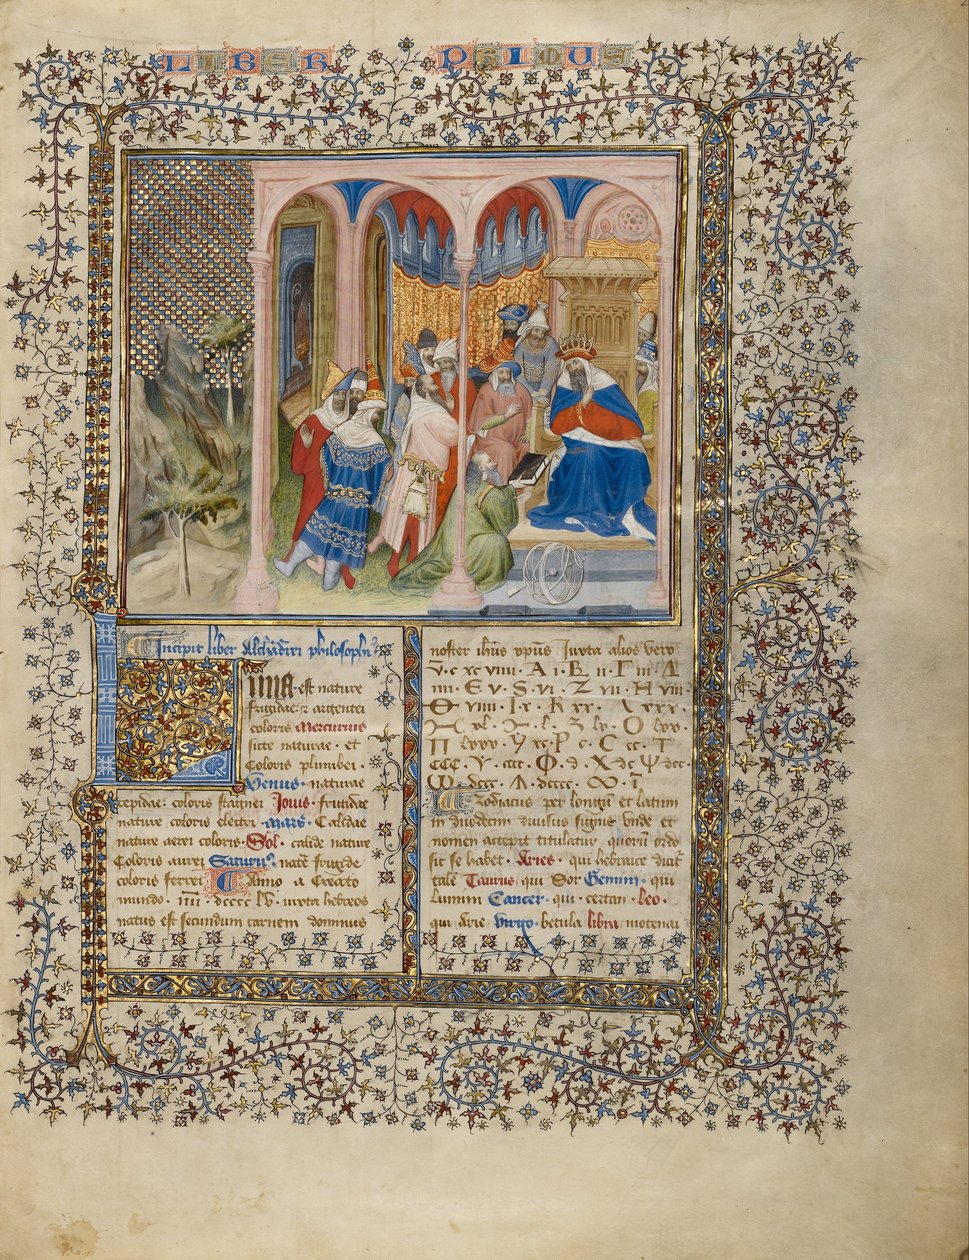 LIBER PRIMUS
Incipit liber Alchandri philosophi
luna est nature
frigide et argentei
coloris Mercurius
siccce nature et
Coloris plumbei
Venus naturae
tepidae coloris stagnei Jovis frigide
nature coloris electri mars Calide
nature aerei coloris Sol calide nature
Coloris aurei Saturn nate frigide
coloris ferrei Anno a Creato
mundo IIII dcccc lv iuxta hebreos
natus est secundum carnem dominus
noster ihus xpus Iuxta alios vero
v c xc viiii A i B ii Γ iii Δ
iiii E v S vi Z vii H viii
Θ viiii I x K xx xxx
xl l Ξ lx O lxx
Π lxxx Ϥ xc P c C cc T
ccc Y cccc Φ d X dc Ψ dcc
Ѡ dccc dcccc ∞ i
Zodiacus per longum et latum
in duodecim divisus signis Unde et
nomen accepit titulatur quorum ordo
sic se habet Aries qui hebraice dicit
tale Taurus qui Sor Gemini qui
Lumim Cancer qui certan Leo
qui Arie Virgo betula libra motenai